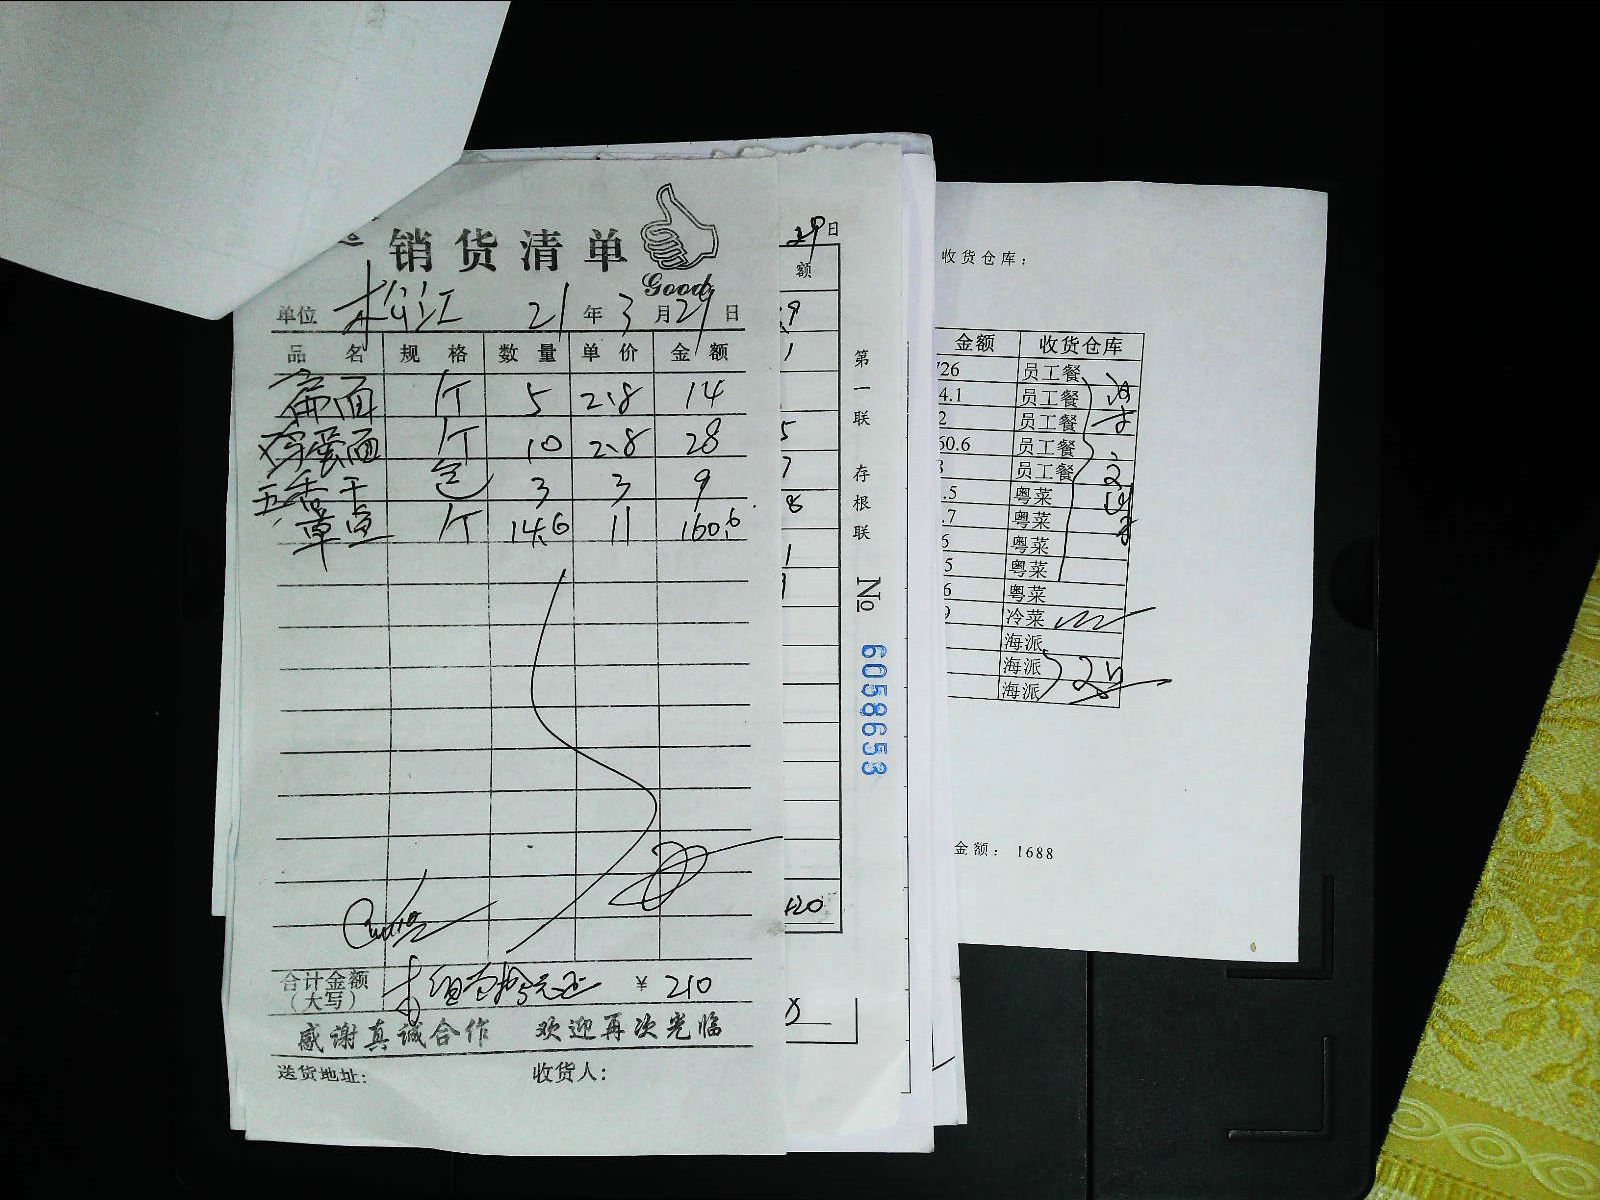 销货清单
Good
单位 松江 21年3月29日
品名 规格 数量 单价 金额
扁面 个 5 2.8 14
鸡蛋面 个 10 2.8 28
五香干 包 3 3 9
章鱼 个 14.6 11 160.6
合计金额（大写） ¥ 210
感谢真诚合作 欢迎再次光临
送货地址: 收货人:
29日
额
第一联 存根联
No 6058653
收货仓库:
金额 收货仓库
726 员工餐
4.1 员工餐
2 员工餐
60.6 员工餐
员工餐
.5 粤菜
.7 粤菜
6 粤菜
5 粤菜
6 粤菜
9 冷菜
海派
海派
海派
金额: 1688